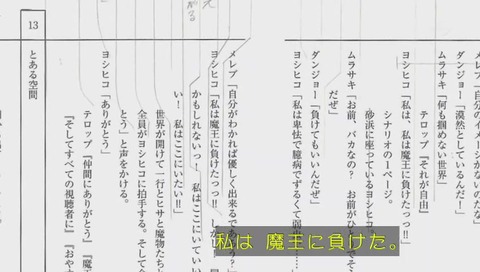 メレブ「自分のイメージがないのだな」
ダンジョー「漠然としているんだー」
ムラサキ「何も掴めない世界」
テロップ『それが自由』
ヨシヒコ「私は、私は魔王に負けたっっ!!」
シナリオの1ページ。
砂浜に座っているヨシヒコ。
ムラサキ「お前、バカなの？　お前がひとりで
だぜ」
ダンジョー「負けてもいいんだぜ」
ヨシヒコ「私は卑怯で臆病でずるくて弱
メレブ「自分がわかれば優しく出来るであろう？」
ヨシヒコ「私は魔王に負けたっっ!!　しかし！
かもしれないっ！　私はここにいてい
い！　私はここにいたい!!」
世界が開けて一行とヒサと魔物たち
全員がヨシヒコに拍手する。そして
とう」と声をかける。
ヨシヒコ「ありがとう」
テロップ『仲間にありがとう』『魔
『そしてすべての視聴者に』『おやす
13
とある空間
私は 魔王に負けた。